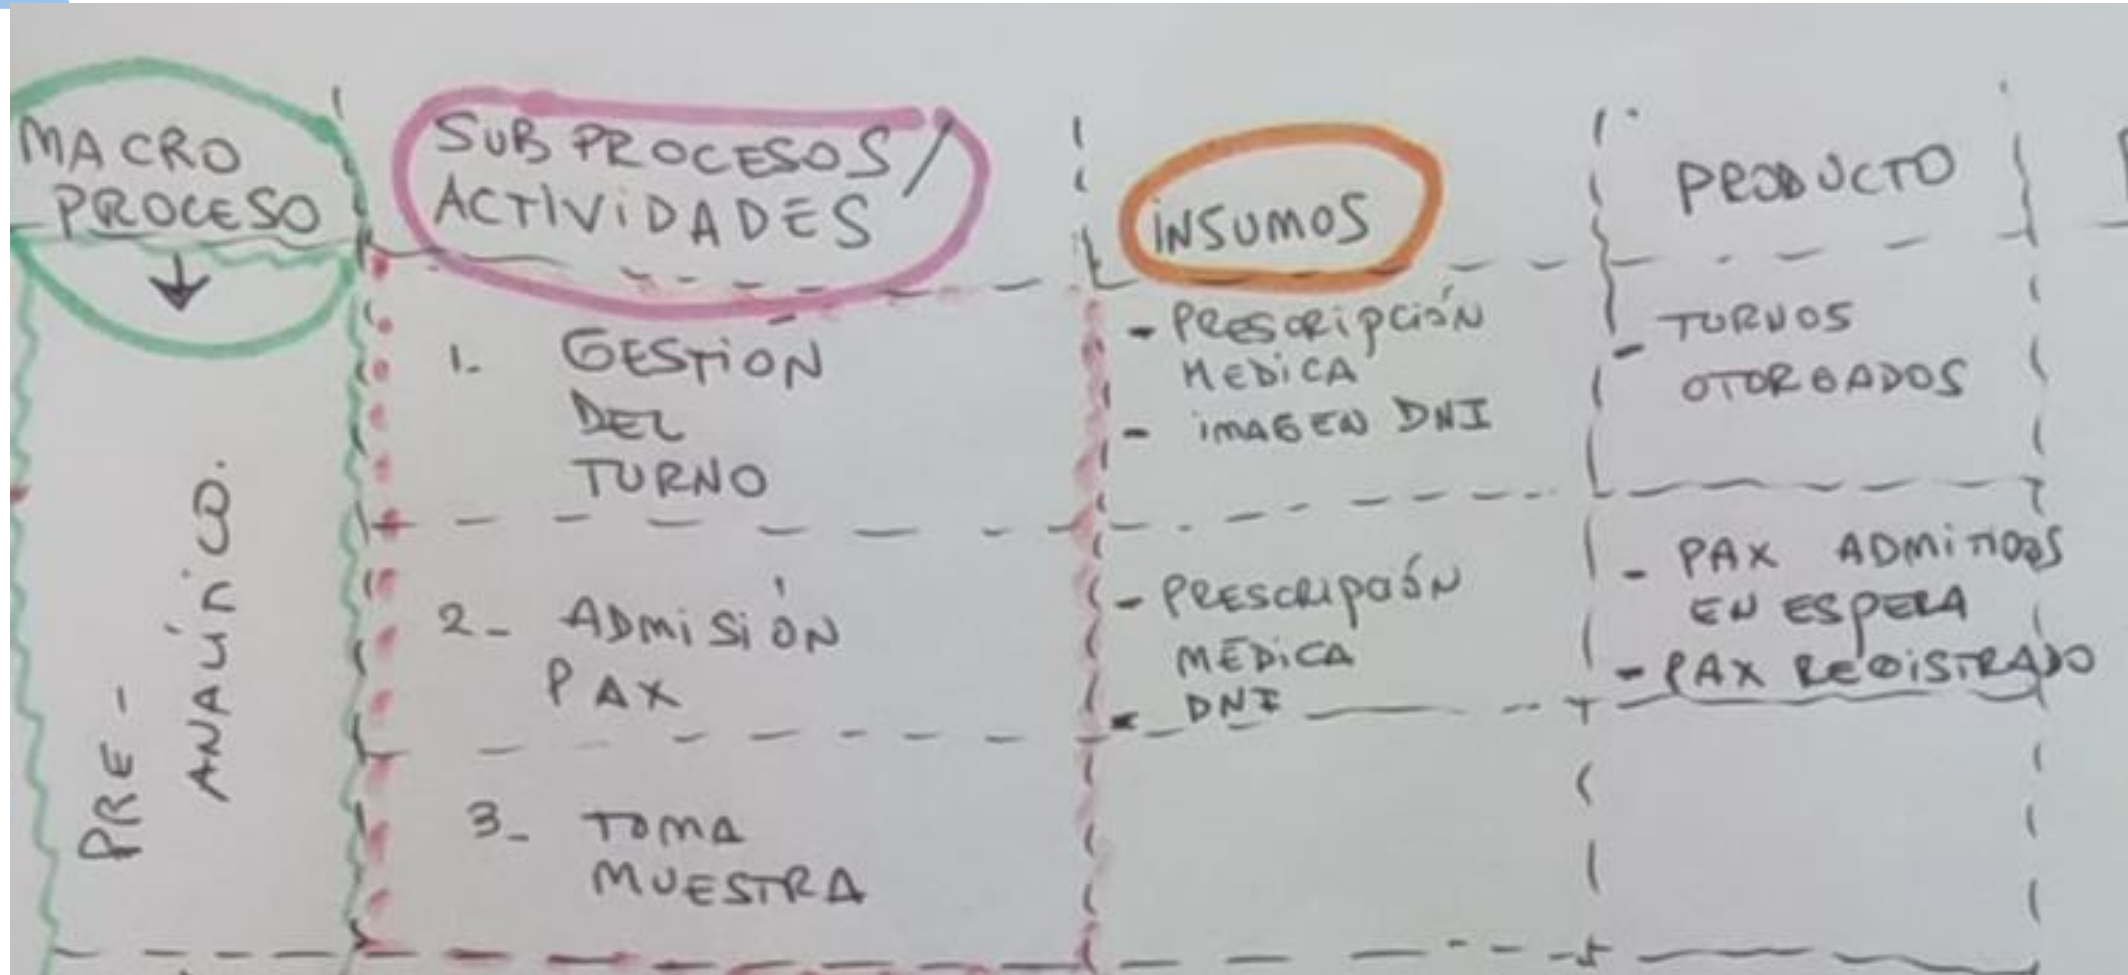 MACRO
PROCESO
SUB PROCESOS /
ACTIVIDADES
INSUMOS
PRODUCTO
PRE-
ANALÍTICO.
1. GESTIÓN
DEL
TURNO
- PRESCRIPCIÓN
MEDICA
- IMAGEN DNI
- TURNOS
OTORGADOS
2- ADMISIÓN
PAX
- PRESCRIPCIÓN
MEDICA
- DNI
- PAX ADMITIDOS
EN ESPERA
- PAX REGISTRADO
3- TOMA
MUESTRA